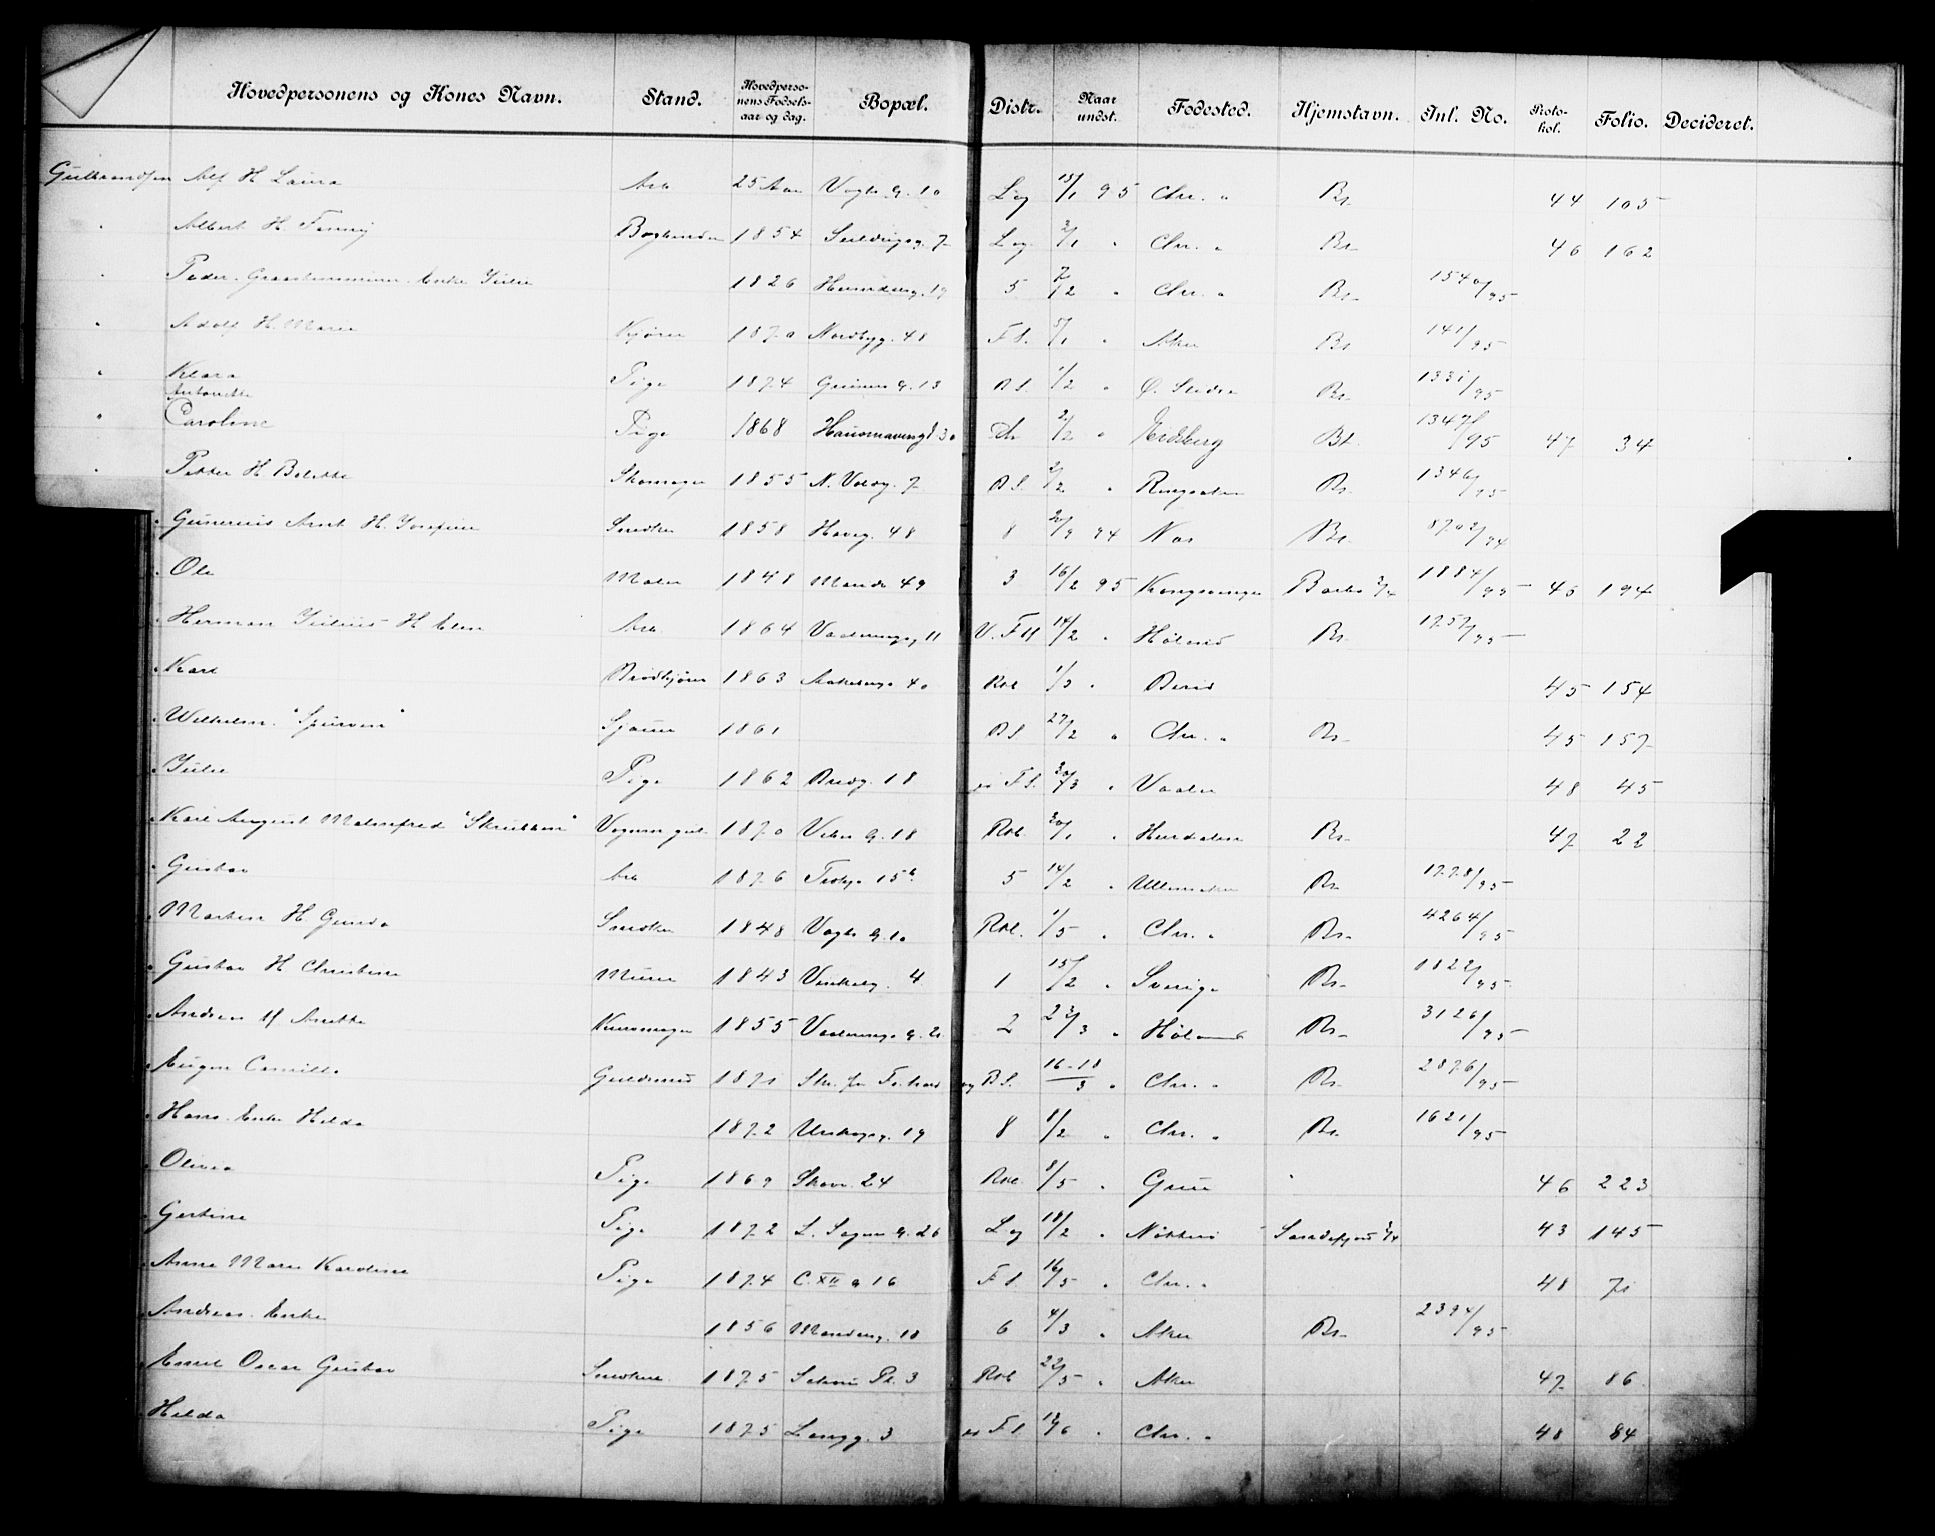 Hovedpersonens og Kones Navn. Stand. Hovedpersonens Fødselsaar og dag. Bopæl. Distr. Naar undst. Fødested. Hjemstavn. Inl. No. Protokol. Folio. Decideret.
Gulbrandsen Alf H Laura Arb 25 Aar Vogts g. 10 Lag 15/1 95 Chr. " Br. 44 105
" Albert H. Fanny Bogbinder 1854 g. 7 Lag. 2/1 " Chr. " Br. 46 162
" Peder. Enke Julie 1826 19 5 7/12 " Chr. " Br. 1540/95
" Adolf H. Marie Kjører 1870 Nordbyg. 48 F S. 5/1 " Aker Br. 141/95
" Klara Antonette Pige 1874 g. 13 B S. 1/2 " Ø. Br. 1331/95
" Caroline Pige 1868 Hausmannsgt 30 2/2 " Eidsberg Br. 1347/95 47 34
" Petter H Bolette Skomager 1855 N. Voldg. 7 B S. 2/2 " Ringsaker Br. 1346/95
" Gunerius Arnt H. Josefine Snedker 1858 Haveg. 48 8 20/9 94 Nes Br. 8702/94
" Ole Maler 1848 49 3 16/2 95 Kongsvinger 1884/95 45 194
" Herman Julius H Elen Arb. 1864 Vaalerengg 11 V. F H 14/2 " Høland Br. 1757/95
" Karl Brødkjører 1863 Akersbergv 40 Rol 1/3 " 45 154
" Wilhelm. "Spurven" Sjouer 1861 B S 27/2 " Chr. " Br. 45 157
" Julie Pige 1862 Bredg. 18 F S. 30/3 " Vaaler 48 45
" Karl August Malmfred "Skrubben" 1870 g. 18 Rol. 20/1 " Hurdalen Br. 47 22
" Gustav Arb 1876 15 b. 5 14/2 " Ullensaker Br. 1778/95
" Martin H Gunda Snedker 1848 Vogts g. 10 Rol. 1/5 " Chr. " Br. 4264/95
" Gustav H Christine Murer 1843 Vinkelg. 4 1 15/2 " Sverige Br. 1822/95
" Andreas H Anette Kurvmager 1855 Vaalerengs g. 2 23/3 " Høland Br. 3126/95
" Eugen Camillo Guldsmed 1871 B S. 16-18/3 " Chr. " Br. 2876/95
" Hans. Enke Hilda 1872 Urskogsg. 19 8 8/2 " Chr. " Br. 1621/95
" Olivia Pige 1869 24 Rol. 8/5 " Grue 46 223
" Gertine Pige 1872 L. Sagens g. 26 Lag 18/2 " Nøtterø Sandefjord 43 145
" Anna Marie Karoline Pige 1874 C. XII g 16 F S. 16/5 " Chr. " 48 71
" Andreas. Enke 1856 18 6 4/3 " Aker Br. 2394/95
" Emil Oscar Gustav Snedker. 1875 Schous Pl. 3 Rol 22/5 " Aker 47 86
" Hilda Pige 1875 Langg. 3 F S. 12/6 " Chr. " 48 84